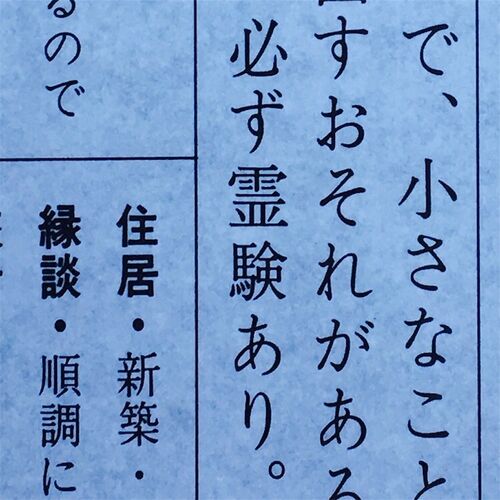 で、小さなこと
すおそれがある
必ず霊験あり。
るので
住居・新築・
縁談・順調に